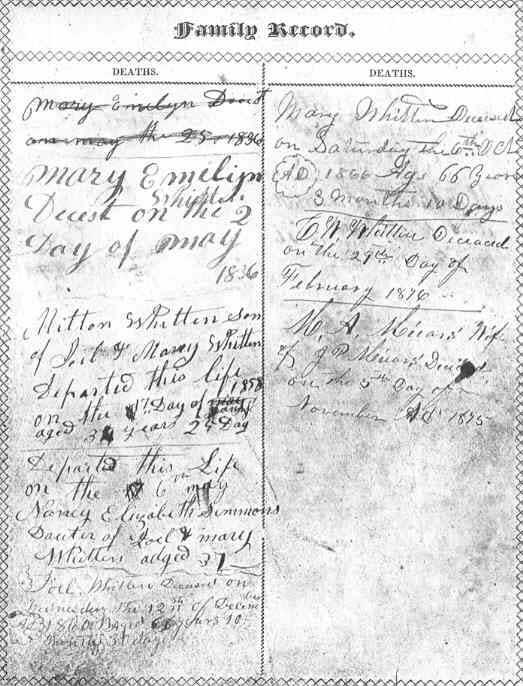 Family Record.
DEATHS.
Mary Emelyn Decest
on may the 25 1836
Mary Emelyn
Whitten
Decest on the 2
Day of may
1836
Milton Whitten son
of Joel & Marey Whitten
Departed this life
on the 1st Day of 1858
aged 34 years 24 Day
Departed this Life
on the 6th may
Nancy Elizabeth Simmons
Dauter of Joel & mary
Whitten adged 37
Joel Whitten Deceased on
Wednesday the 12th of Decem
AD 1860 Aged 66 years 10
months 3 days
DEATHS.
Mary Whitten Deceased
on Saturday the 6th Oct
AD 1866 Age 66 Years
3 Months 10 Days
Whitten Deceased
on the 29th Day of
February 1876
M. A. Wife
of J P Deceased
on the 5th Day of
November AD 1875